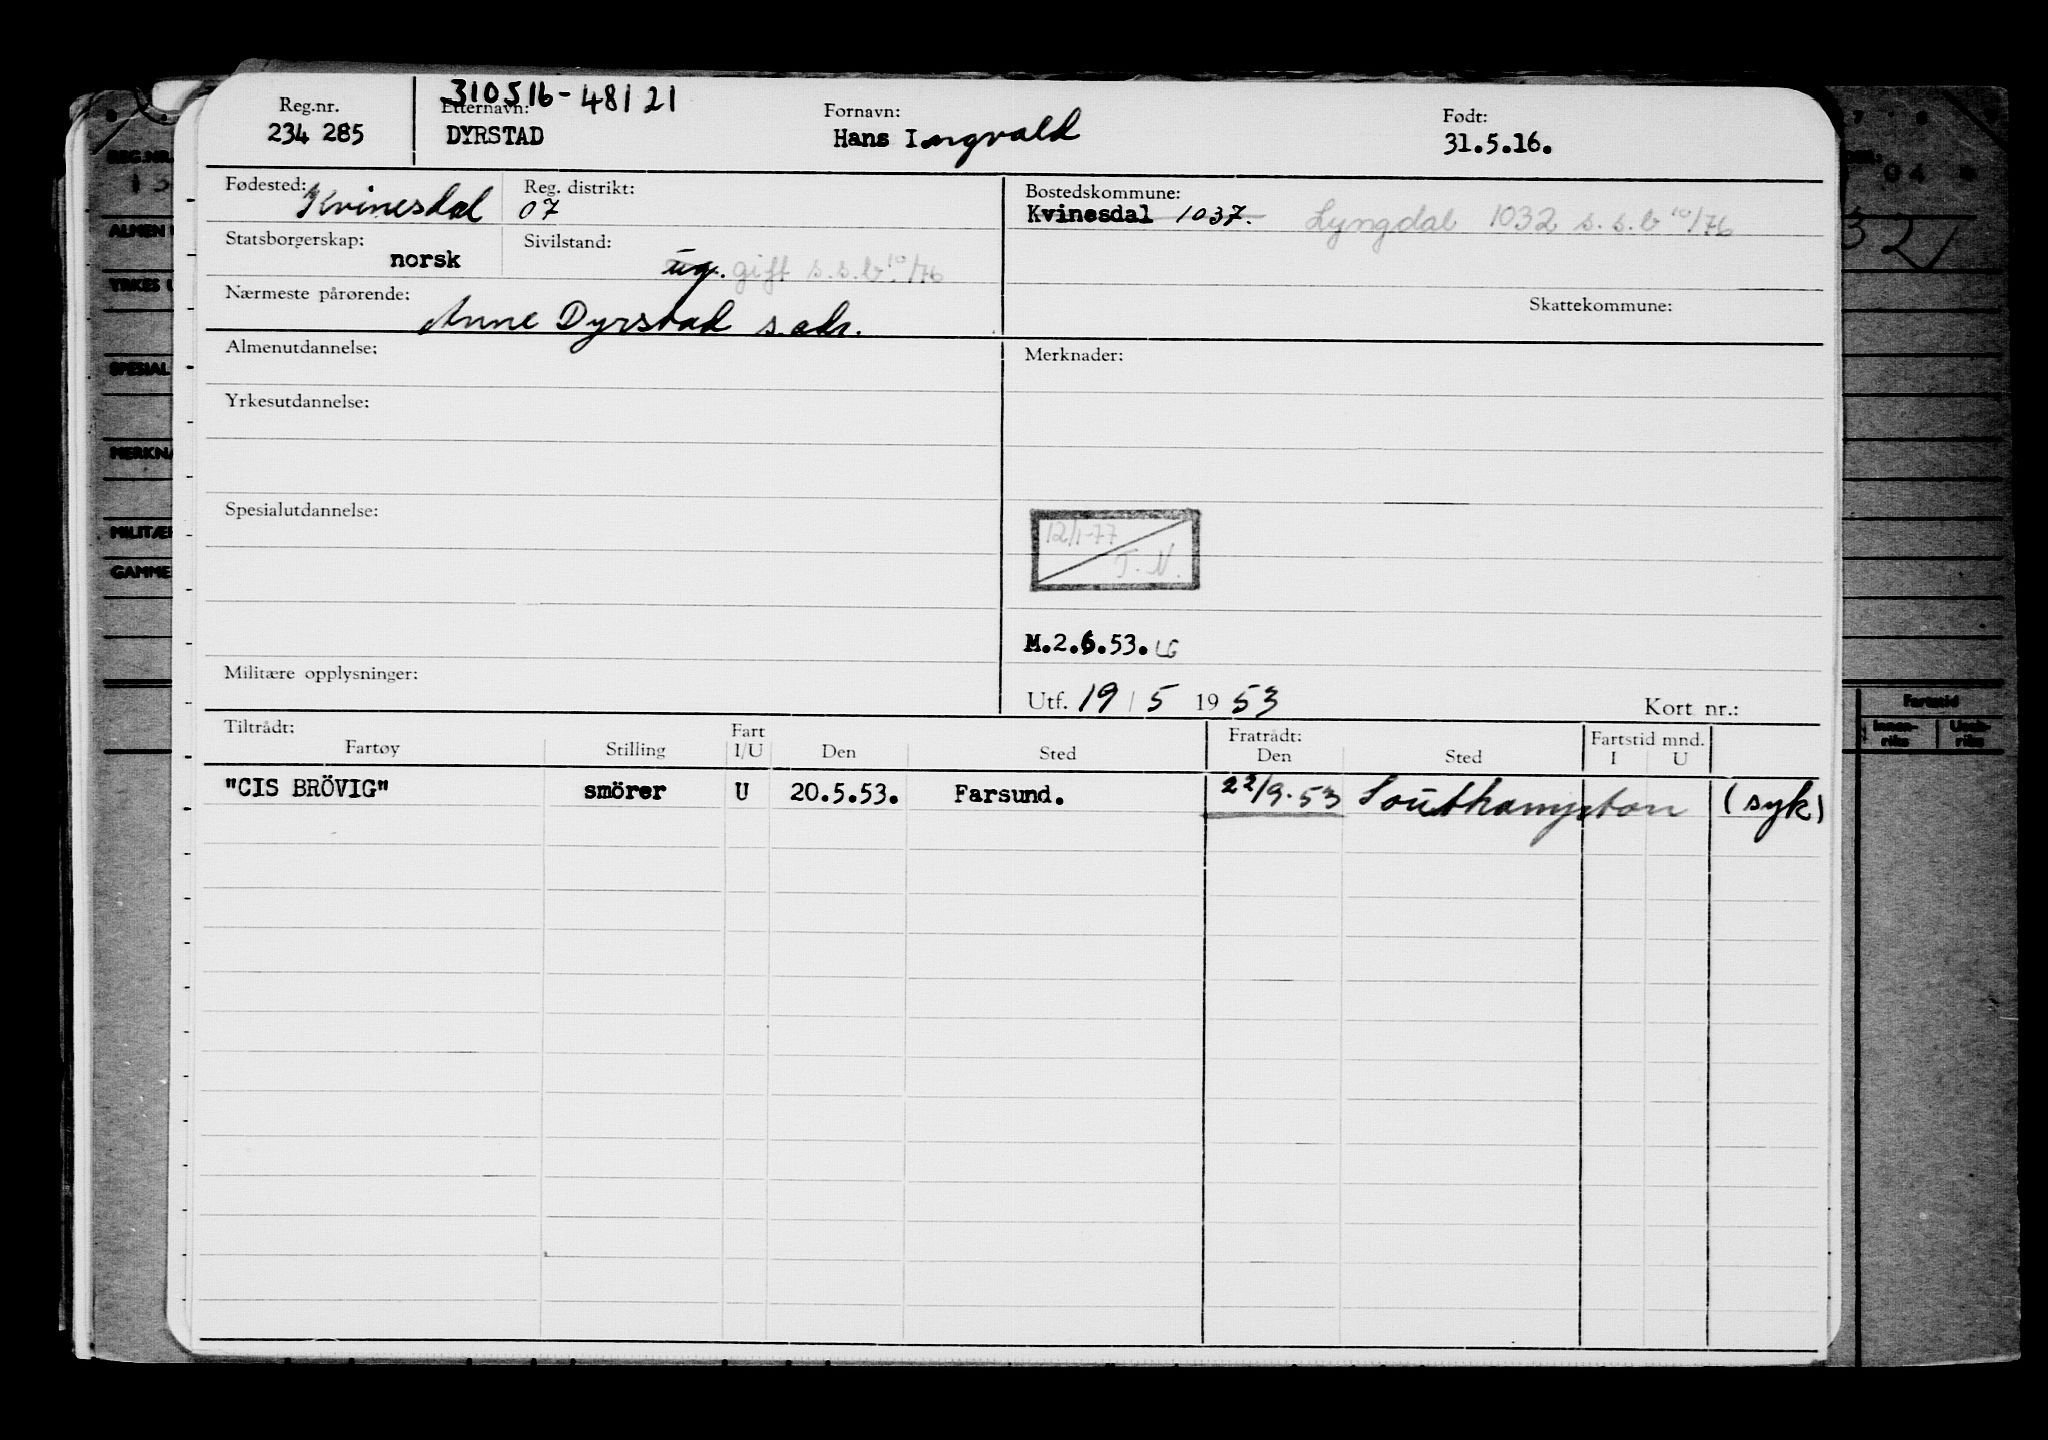 310516-48121
Reg.nr. Etternavn: Fornavn: Født:
234 285 DYRSTAD Hans Ingvald 31.5.16.
Fødested: Kvinesdal Reg. distrikt: 07 Bostedskommune: Kvinesdal 1037. Lyngdal 1032 s.s.b 10/76
Statsborgerskap: norsk Sivilstand: ug. gift s.s.b. 10/76
Nærmeste pårørende: Anne Dyrstad s. adr. Skattekommune:
Almenutdannelse: Merknader:
Yrkesutdannelse:
Spesialutdannelse:
12/1-77
T.N.
M.2.6.53. LG
Militære opplysninger: Utf. 19 / 5 19 53 Kort nr.:
Tiltrådt: Fart Fratrådt: Fartstid mnd.
Fartøy Stilling I/U Den Sted Den Sted I U
"CIS BRÖVIG" smörer U 20.5.53. Farsund. 22/9.53 Southampton (syk)
REG.NR.
ALMEN
YRKES
SPESIAL
MERKNA
MILITÆR
GAMME
Fartstid
Innen-
riks
Uten-
riks